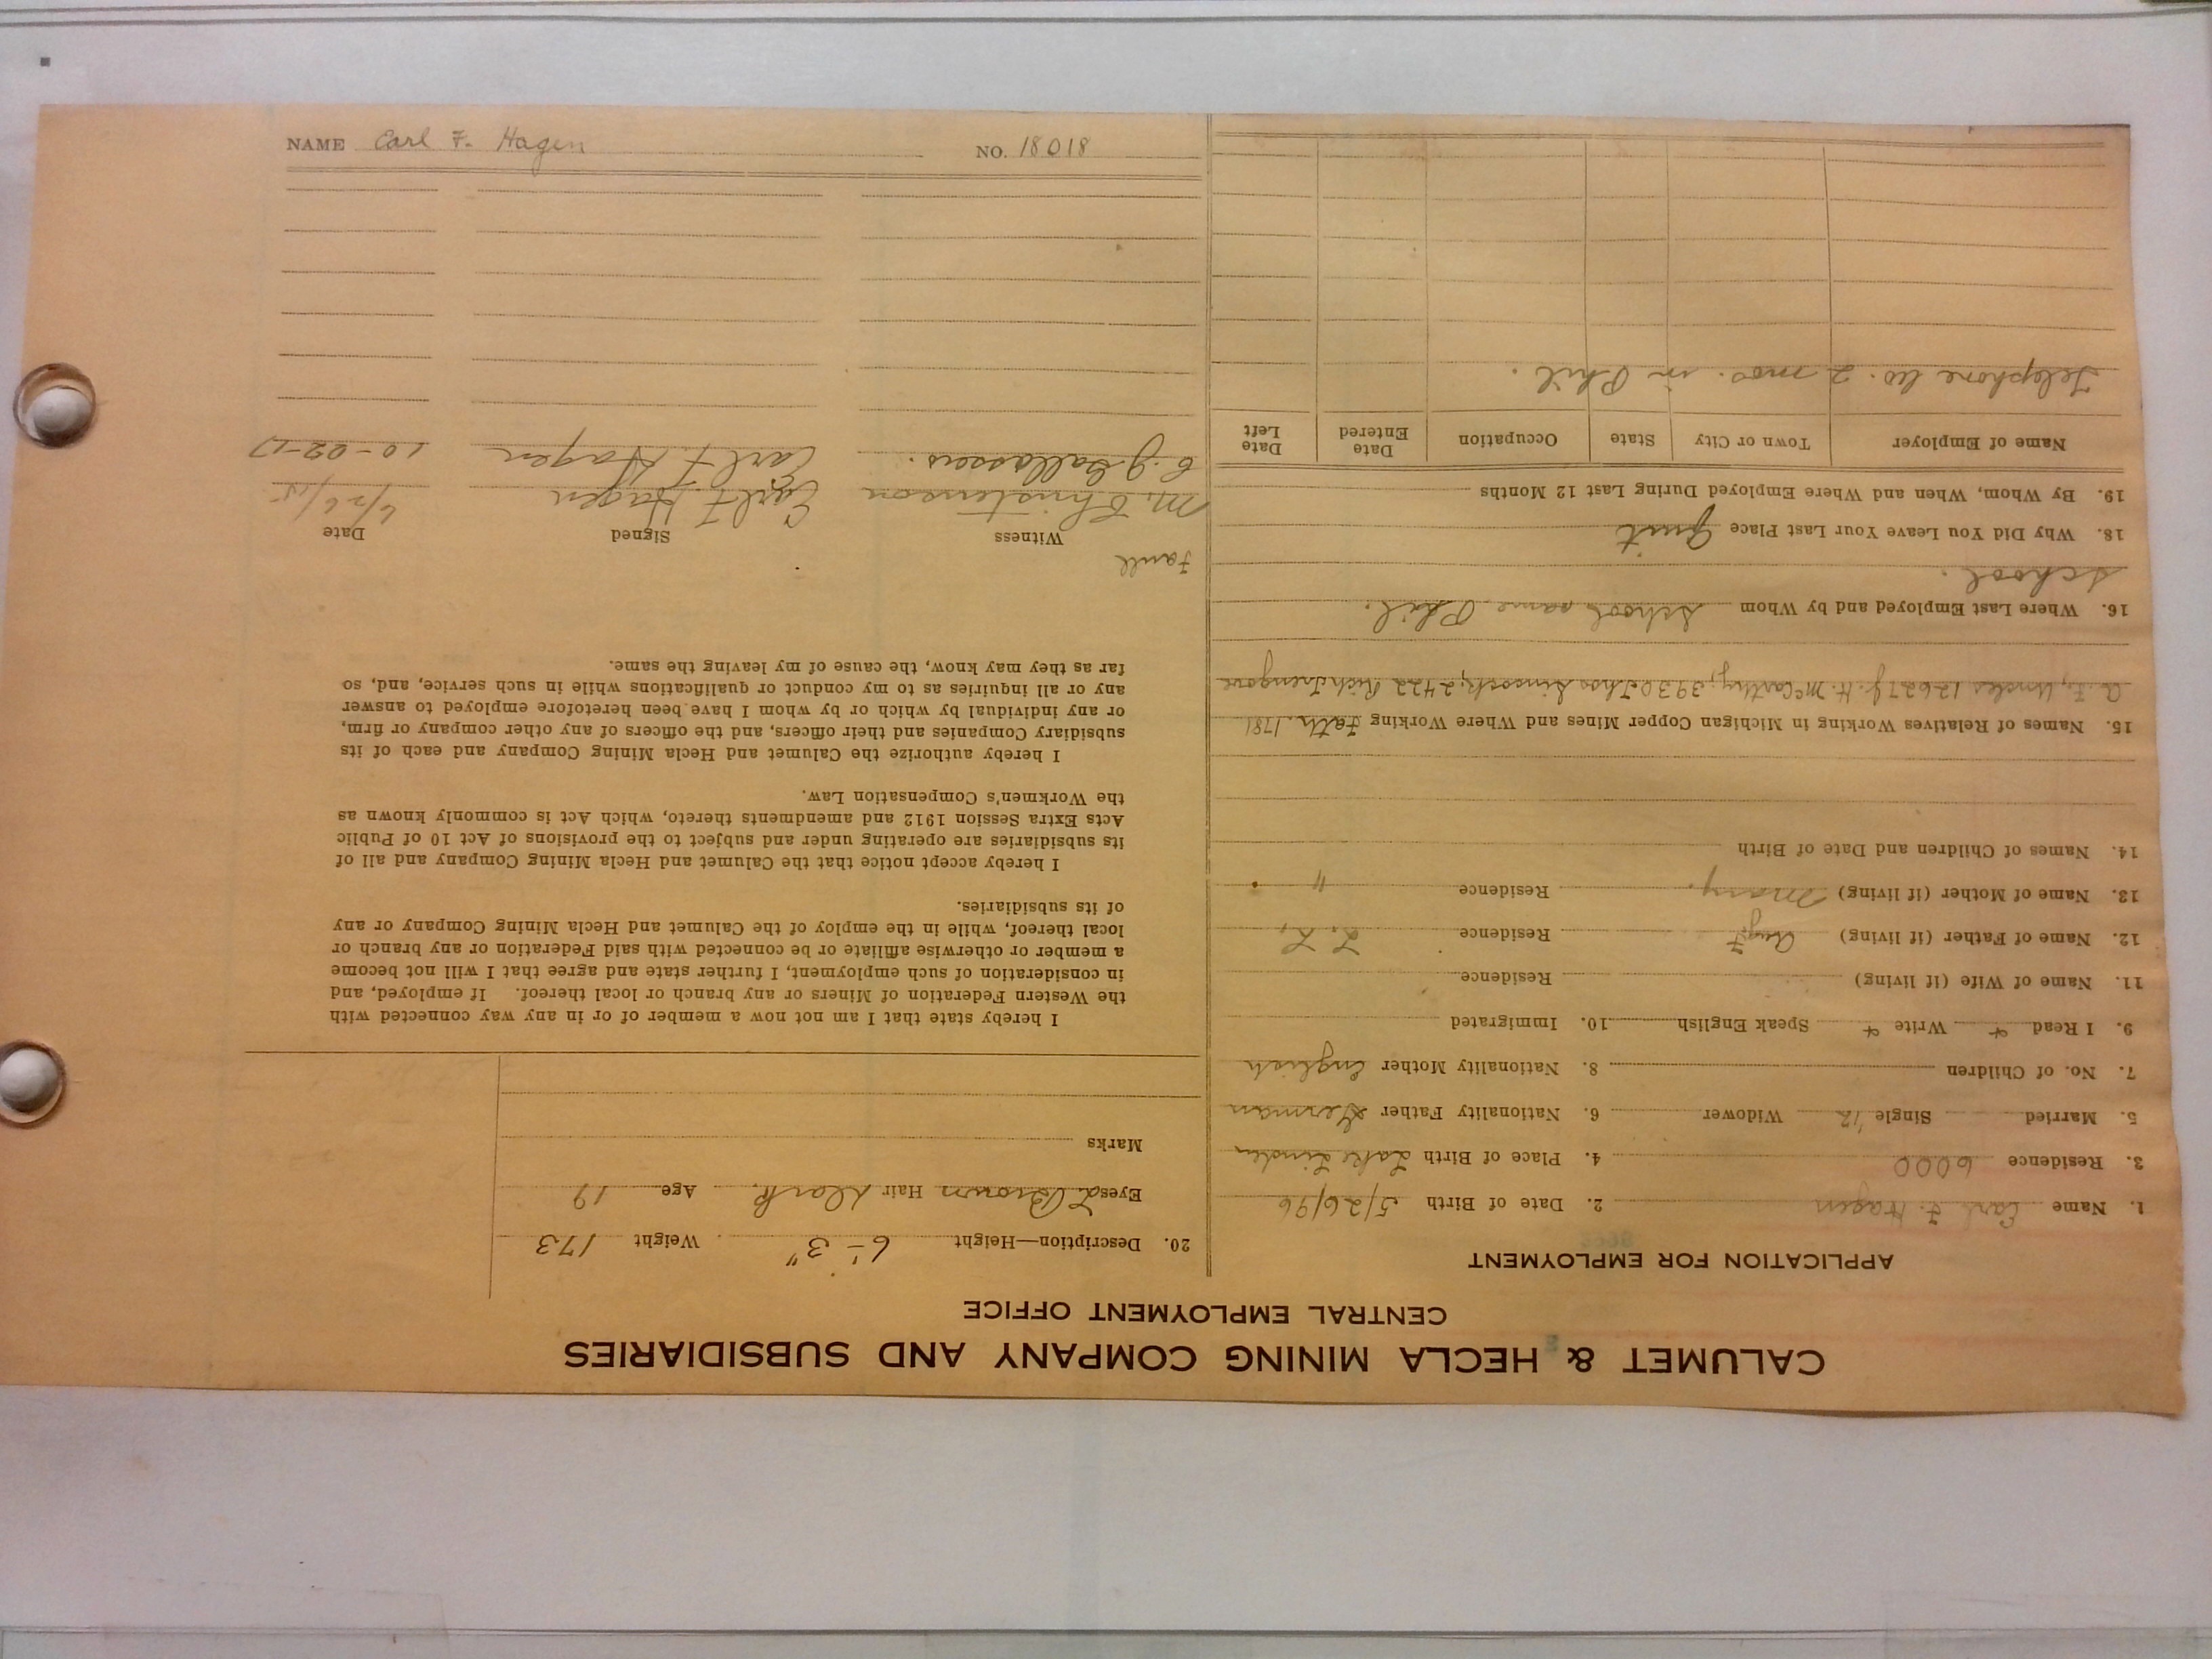 CALUMET & HECLA MINING COMPANY AND SUBSIDIARIES
CENTRAL EMPLOYMENT OFFICE
APPLICATION FOR EMPLOYMENT
1. Name Carl F. Hagen 2. Date of Birth 5/26/96
3. Residence 6000 4. Place of Birth Lake Linden
5. Married Single Widower 6. Nationality Father German
7. No. of Children 8. Nationality Mother English
9. I Read Write Speak English 10. Immigrated
11. Name of Wife (if living) Residence
12. Name of Father (if living) Aug F Residence L. L.
13. Name of Mother (if living) Mary. Residence "
14. Names of Children and Date of Birth
15. Names of Relatives Working in Michigan Copper Mines and Where Working Fath. 1781
A. F., Uncles 12627 J. H. McCarthy, 3930 Thos 2422 Rich Trengove
16. Where Last Employed and by Whom School Phil.
School.
18. Why Did You Leave Your Last Place Quit
19. By Whom, When and Where Employed During Last 12 Months
Name of Employer Town or City State Occupation Date Entered Date Left
Telephone Co. 2 mos. in Phil.
20. Description—Height 6'-3" Weight 173
Eyes L Brown Hair Dark Age 19
Marks
I hereby state that I am not now a member of or in any way connected with
the Western Federation of Miners or any branch or local thereof. If employed, and
in consideration of such employment, I further state and agree that I will not become
a member or otherwise affiliate or be connected with said Federation or any branch or
local thereof, while in the employ of the Calumet and Hecla Mining Company or any
of its subsidiaries.
I hereby accept notice that the Calumet and Hecla Mining Company and all of
its subsidiaries are operating under and subject to the provisions of Act 10 of Public
Acts Extra Session 1912 and amendments thereto, which Act is commonly known as
the Workmen's Compensation Law.
I hereby authorize the Calumet and Hecla Mining Company and each of its
subsidiary Companies and their officers, and the officers of any other company or firm,
or any individual by which or by whom I have been heretofore employed to answer
any or all inquiries as to my conduct or qualifications while in such service, and, so
far as they may know, the cause of my leaving the same.
Witness Signed Date
M. Christenson Carl F. Hagen 6/26/15
C. J. Carl F. Hagen 10-02-17
NAME Carl F. Hagen NO. 18018